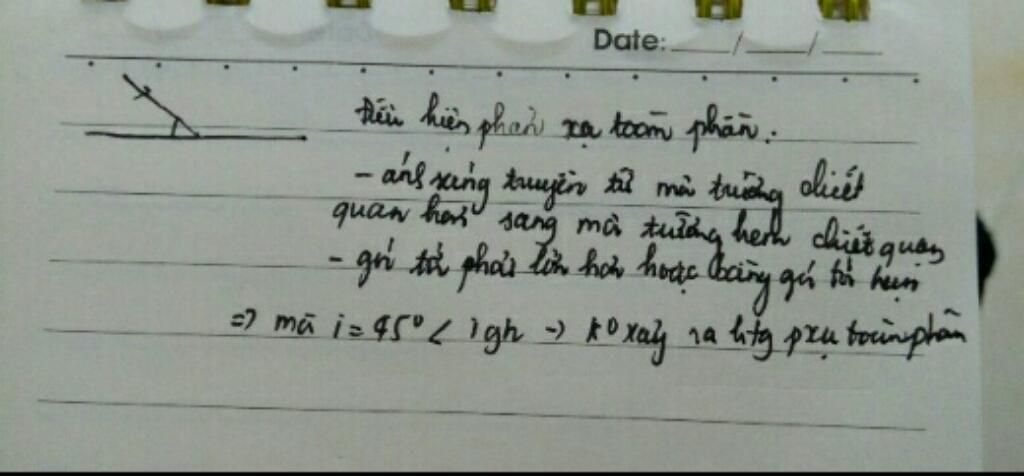 Date: __/__/__
Điều kiện phản xạ toàn phần:
- ánh sáng truyền từ mô trường chiết
quan hơn sang mô trường kem chiết quan
- gói tới phải lớn hơn hoặc bằng gói tới hạn
=> mà i = 45° < igh -> k° xảy ra htg pxạ toàn phần